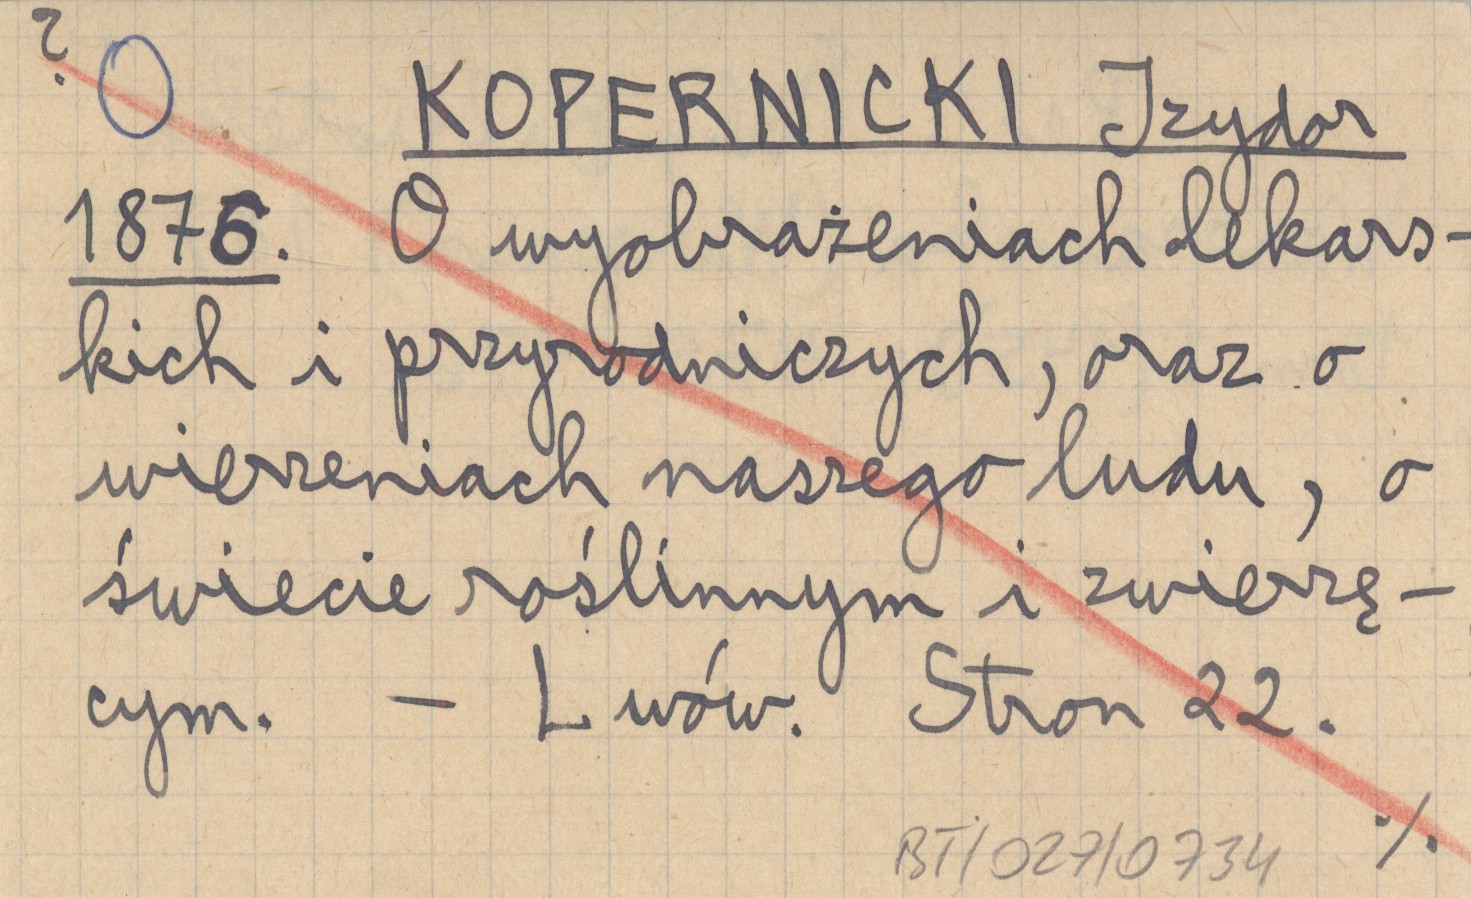 ?
O KOPERNICKI Izydor
1876. O wyobrażeniach lekars-
kich i przyrodniczych, oraz o
wierzeniach naszego ludu, o
świecie roślinnym i zwierzę-
cym. - Lwów. Stron 22.
BT/027/0734 ./.